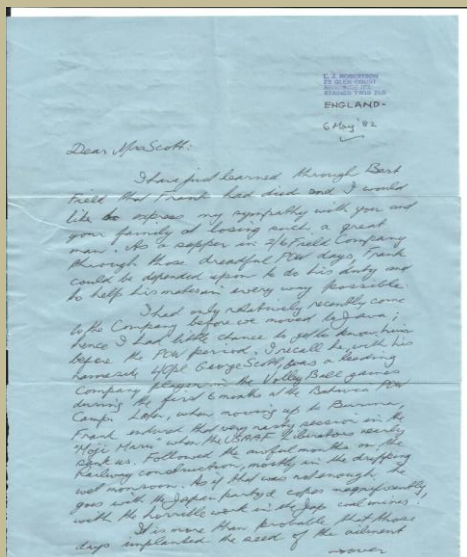 E. J. ROBERTSON
25 GLEN COURT
STAINES
ENGLAND-
6 May '82
Dear Mrs Scott:
I have just learned through Bert
Field that Frank had died and I would
like to express my sympathy with you and
your family at losing such a great
man. As a sapper in 2/6 Field Company
through those dreadful POW days, Frank
could be depended upon to do his duty and
to help his mates in every way possible.
I had only relatively recently come
to the Company before we moved to Java;
hence I had little chance to get to know him
before the POW period. I recall he, with his
namesake George Scott, was a leading
Company player in the Volley Ball games
during the first 6 months at the Batavia POW
Camp. Later, when moving up to Burma,
Frank endured that very nasty session in the
"Moji Maru" when the Liberators nearly
sank us. Followed the awful months on the
Railway construction, mostly in the dripping
wet monsoon. As if that was not enough, he
goes with the Japan party & copes magnificently
with the horrible work in the Jap coal mines!
It is more than probable that those
days implanted the seed of the ailment
over